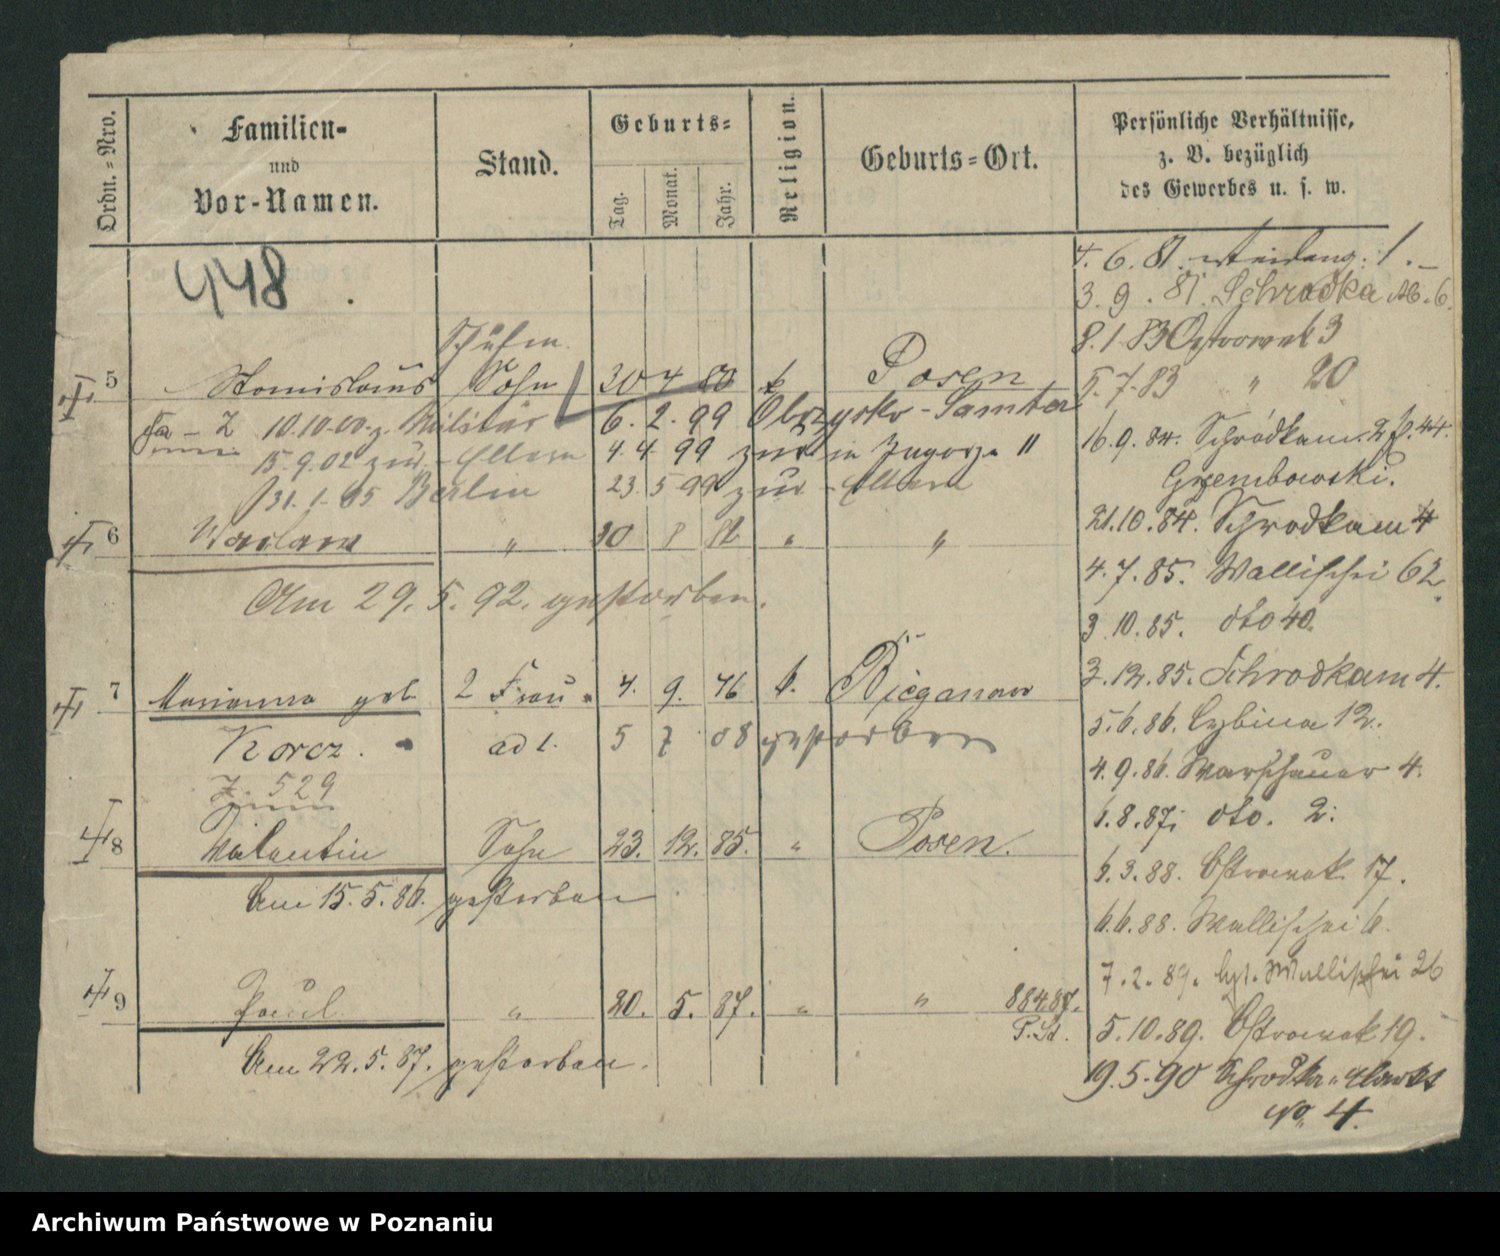 Ordn.=Nro.
Familien-
und
Vor-Namen.
Stand.
Geburts=
Tag.
Monat.
Jahr.
Religion.
Geburts=Ort.
Persönliche Verhältnisse,
z. B. bezüglich
des Gewerbes u. s. w.
448
4. 6. 81.
3. 9. 81. Schrodka No. 6
8. 1. 83 Ostrowek 3
5. 7. 83 " 20
16. 9. 84. Schrodkam.
Grzembowski.
21. 10. 84. Schrodkam 4
4. 7. 85. Wallischei 62
3 10. 85. dto 40.
3. 12. 85. Schrodkam 4.
5. 6. 86. Cybina 12.
4. 9. 86. Warschauer 4.
6. 8. 87. dto. 2.
6. 3. 88. Ostrowek 17.
6. 6. 88. Wallischei 6.
7. 2. 89. Wallischei 26
5. 10. 89. Ostrowek 19.
19. 5. 90 Schrodka Markt
No. 4.
5 Stanislaus Sohn 30 4 80 k Posen
10.10.00 z. Militär 6. 2. 99 Obrzycko - Samter
15. 9. 02 zur. Eltern 4. 4. 99 zur in
31. 1. 05 Berlin 23. 5 99 zur Eltern
6 Waclaw " "  "
Am 29. 5. 92. gestorben.
7 Marianna geb. 2 Frau 4. 9. 46 k. Bieganowo
Korcz. ad 1. 5 7 08 gestorben
Z. 529
8 Valentin Sohn 23. 12. 85. " Posen.
Am 15. 5. 86. gestorben
9 Paul " 20. 5. 87. " " 884.87.
P. Sd.
Am 22. 5. 87. gestorben.
Archiwum Państwowe w Poznaniu